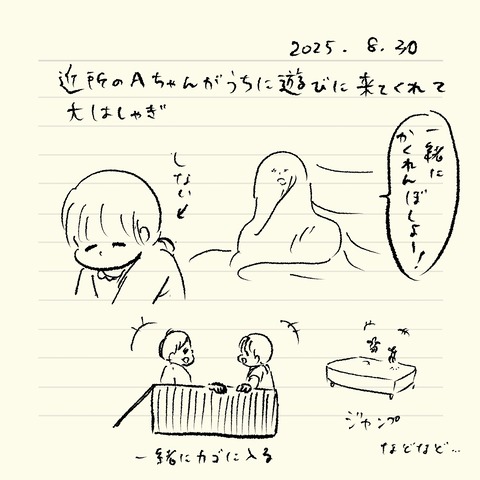 2025. 8. 30
近所のAちゃんがうちに遊びに来てくれて
大はしゃぎ
一緒に
かくれんぼしよー!
しない
一緒にカゴに入る
ジャンプ
などなど…